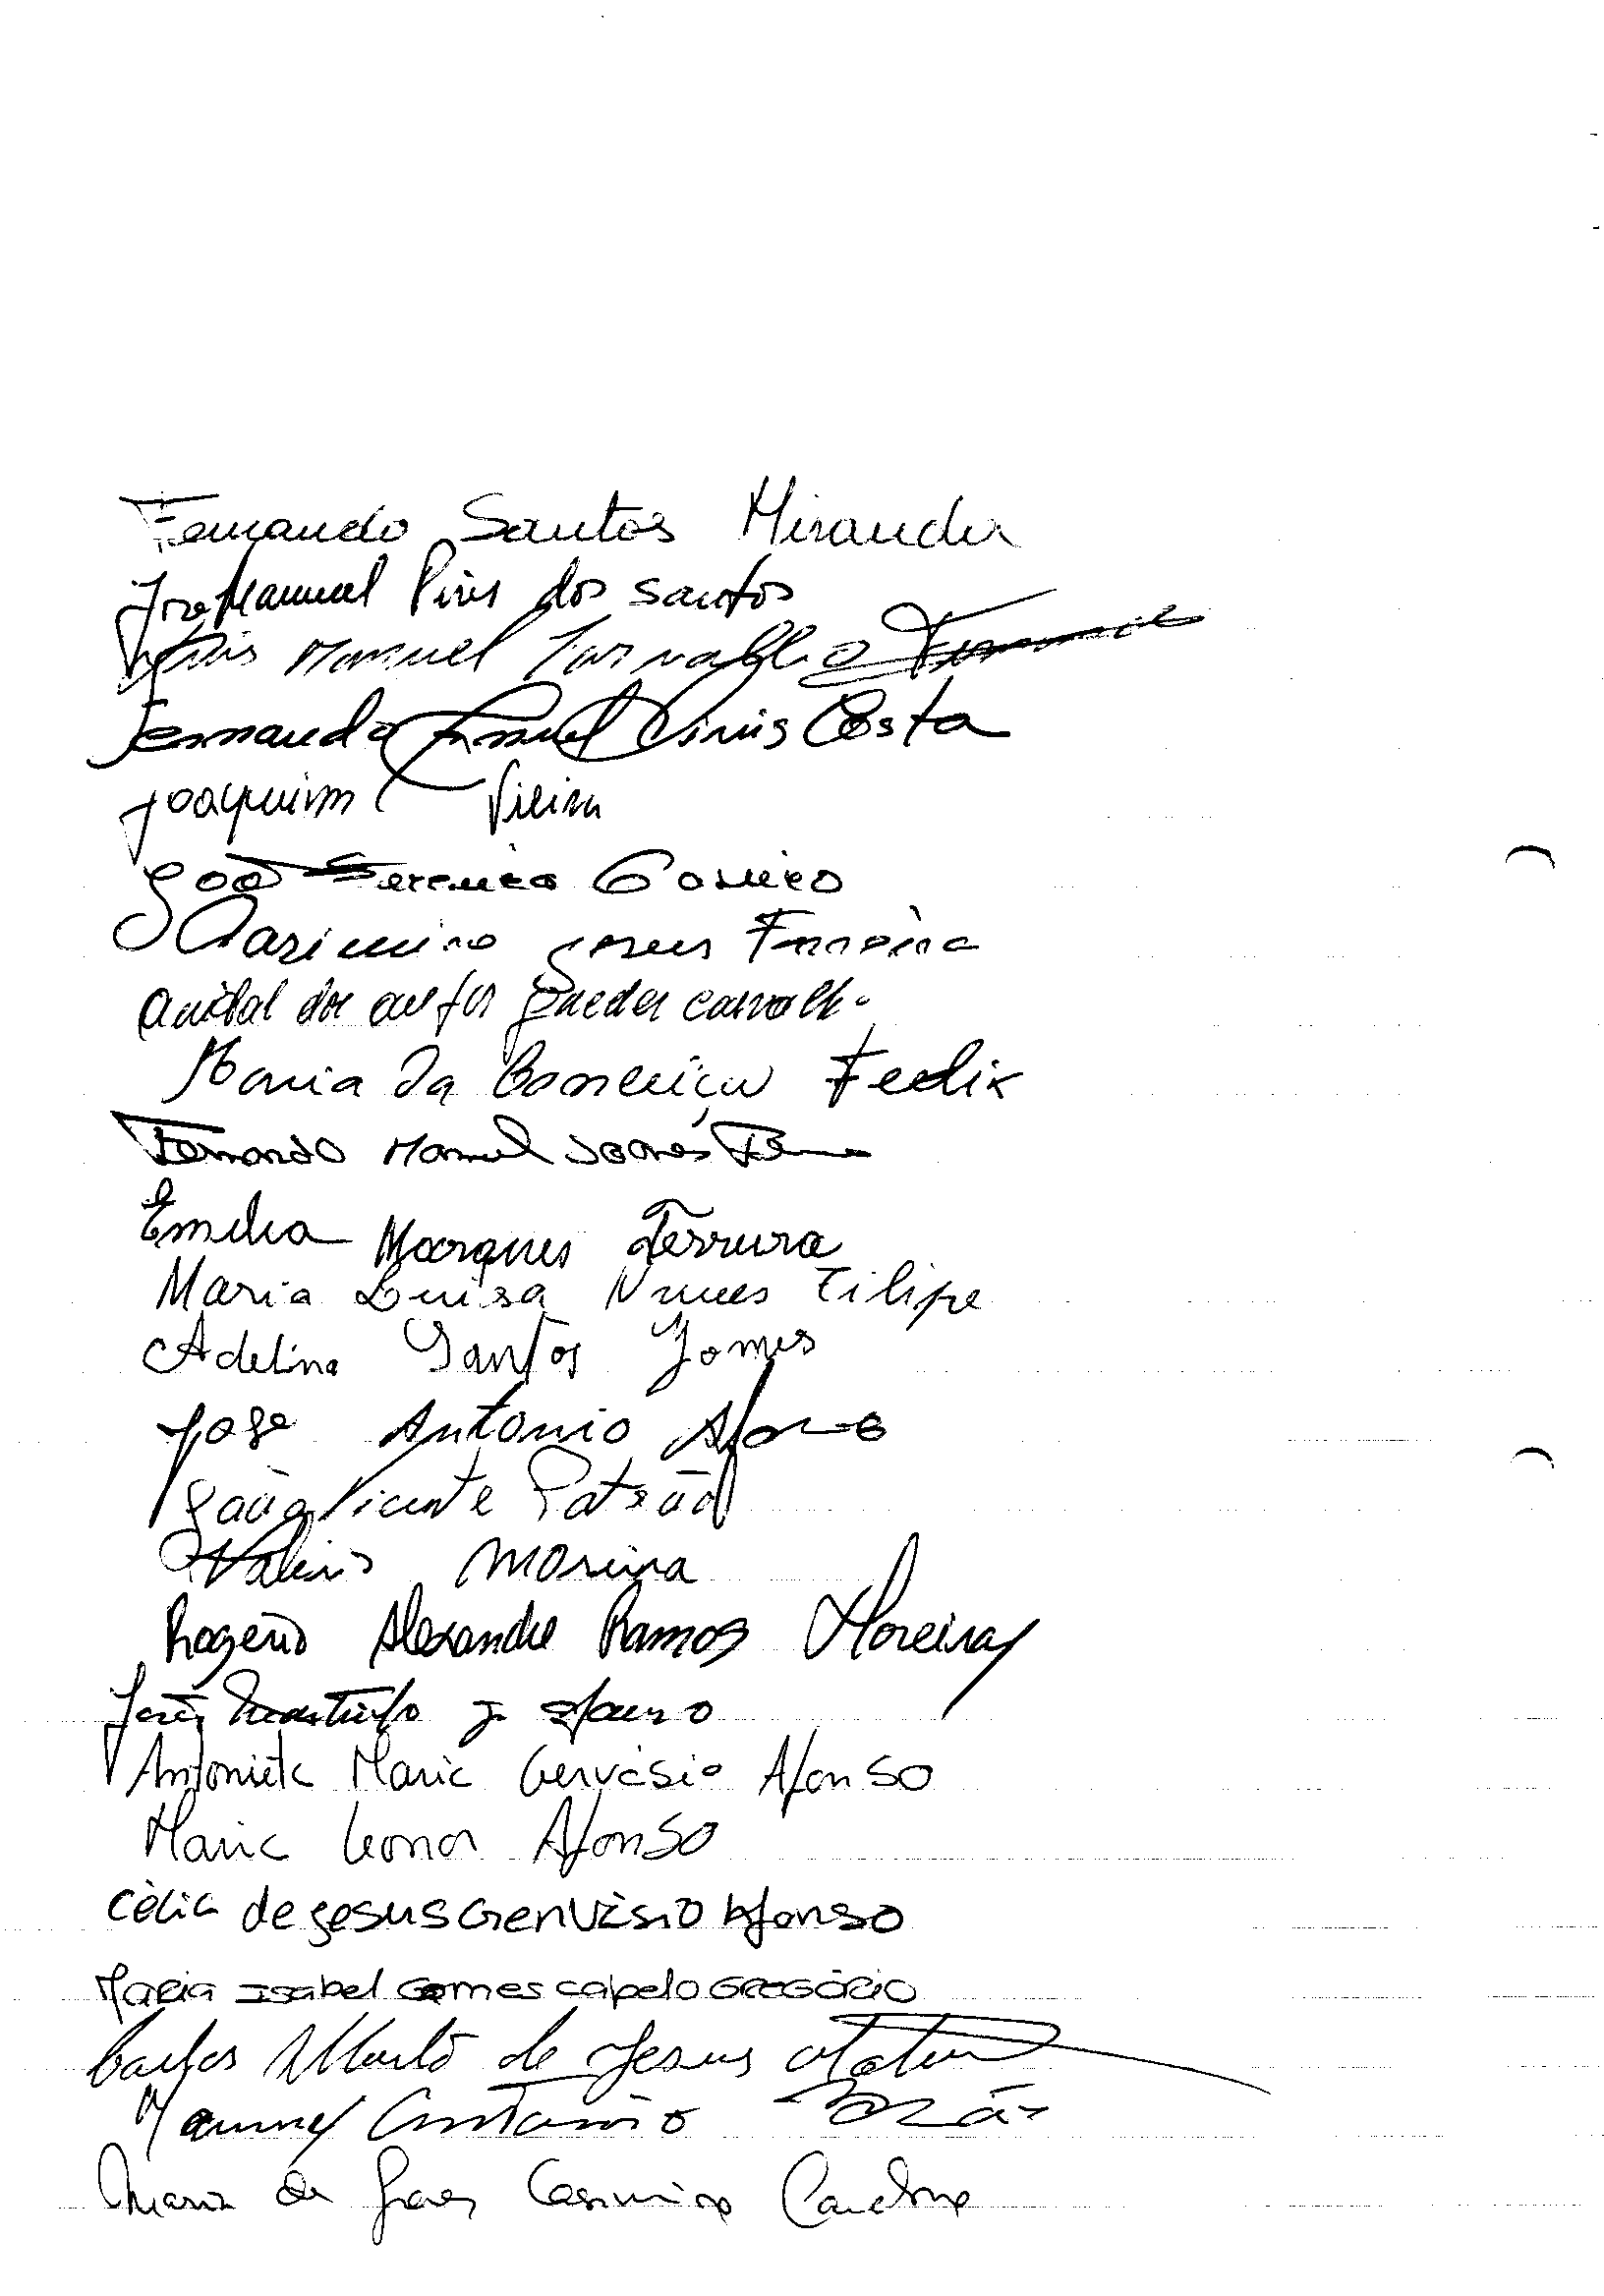 Fernando Santos Miranda
José Manuel Pires dos Santos
Luis Manuel Carvalho
Fernando Manuel Dinis Costa
Joaquim Vieira
João Ferreira
Casimiro Ferreira
dos Guedes Carvalho
Maria da Conceição Felix
Fernando Manuel Soares
Emilia Marques Ferreira
Maria Luisa Nunes Filipe
Adelina Santos Gomes
José Antonio Afonso
João Vicente Patrão
Moreira
Rogério Alexandre Ramos Moreira
José J. Afonso
Antonieta Maria Gervásio Afonso
Maria Leonor Afonso
Célia de Jesus Gervásio Afonso
Maria Isabel Gomes Capelo GREGÓRIO
Carlos Alberto de Jesus
Manuel
Maria de Casimiro Cardoso